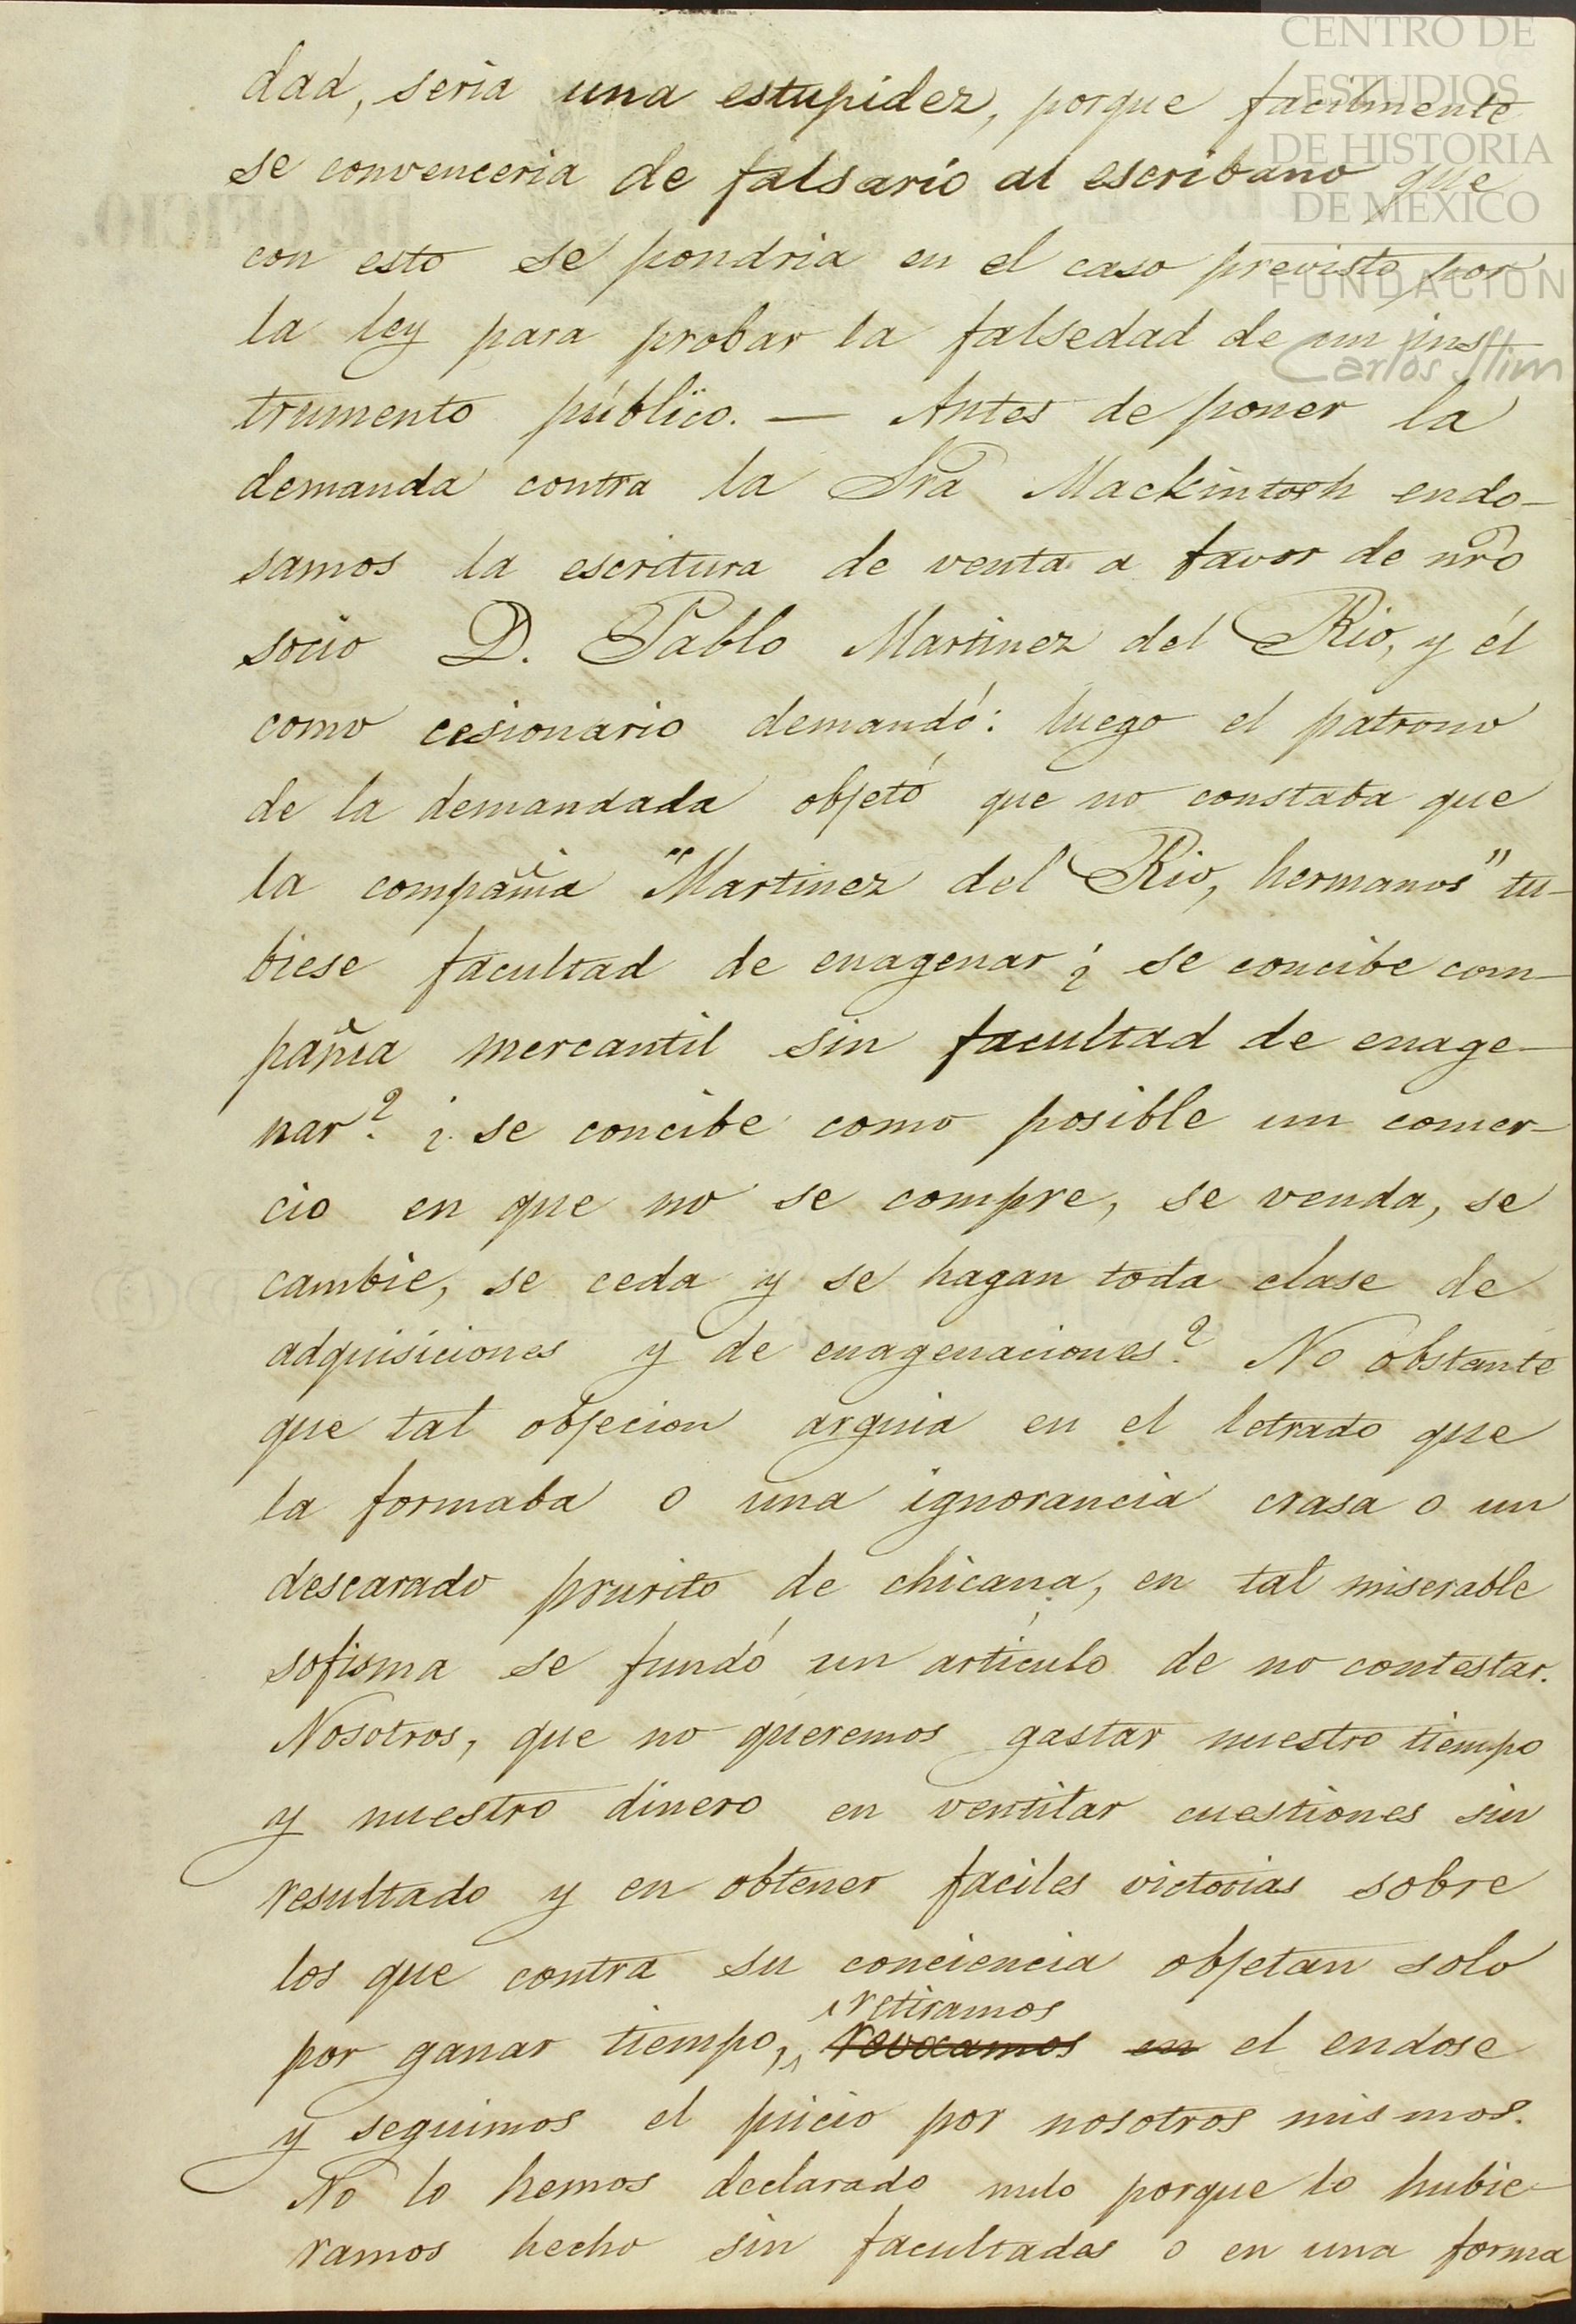 CENTRO DE
ESTUDIOS
DE HISTORIA
DE MÉXICO
FUNDACIÓN
Carlos Slim
DE OFICIO.
dad, seria una estupidez, porque facilmente
se convenceria de falsario al escribano que
con esto se pondria en el caso previsto por
la ley para probar la falsedad de un ins
trumento público. — Antes de poner la
demanda contra la Sra Mackintosh endo-
samos la escritura de venta a favor de nro
socio D. Pablo Martinez del Rio, y él
como cesionario demandó: luego el patrono
de la demandada objetó que no constaba que
la compañia "Martinez del Rio, hermanos" tu-
biese facultad de enagenar ¿ se concibe com-
pañia mercantil sin facultad de enage-
nar? ¿ se concibe como posible un comer-
cio en que no se compre, se venda, se
cambie, se ceda y se hagan toda clase de
adquisiciones y de enagenaciones? No obstante
que tal objecion arguia en el letrado que
la formaba o una ignorancia crasa o un
descarado prurito de chicana, en tal miserable
sofisma se fundó un artículo de no contestar.
Nosotros, que no queremos gastar nuestro tiempo
y nuestro dinero en ventilar cuestiones sin
resultado y en obtener faciles victorias sobre
los que contra su conciencia objetan solo
retiramos
por ganar tiempo, revocamos en el endose
y seguimos el juicio por nosotros mismos.
No lo hemos declarado nulo porque lo hubie-
ramos hecho sin facultades o en una forma